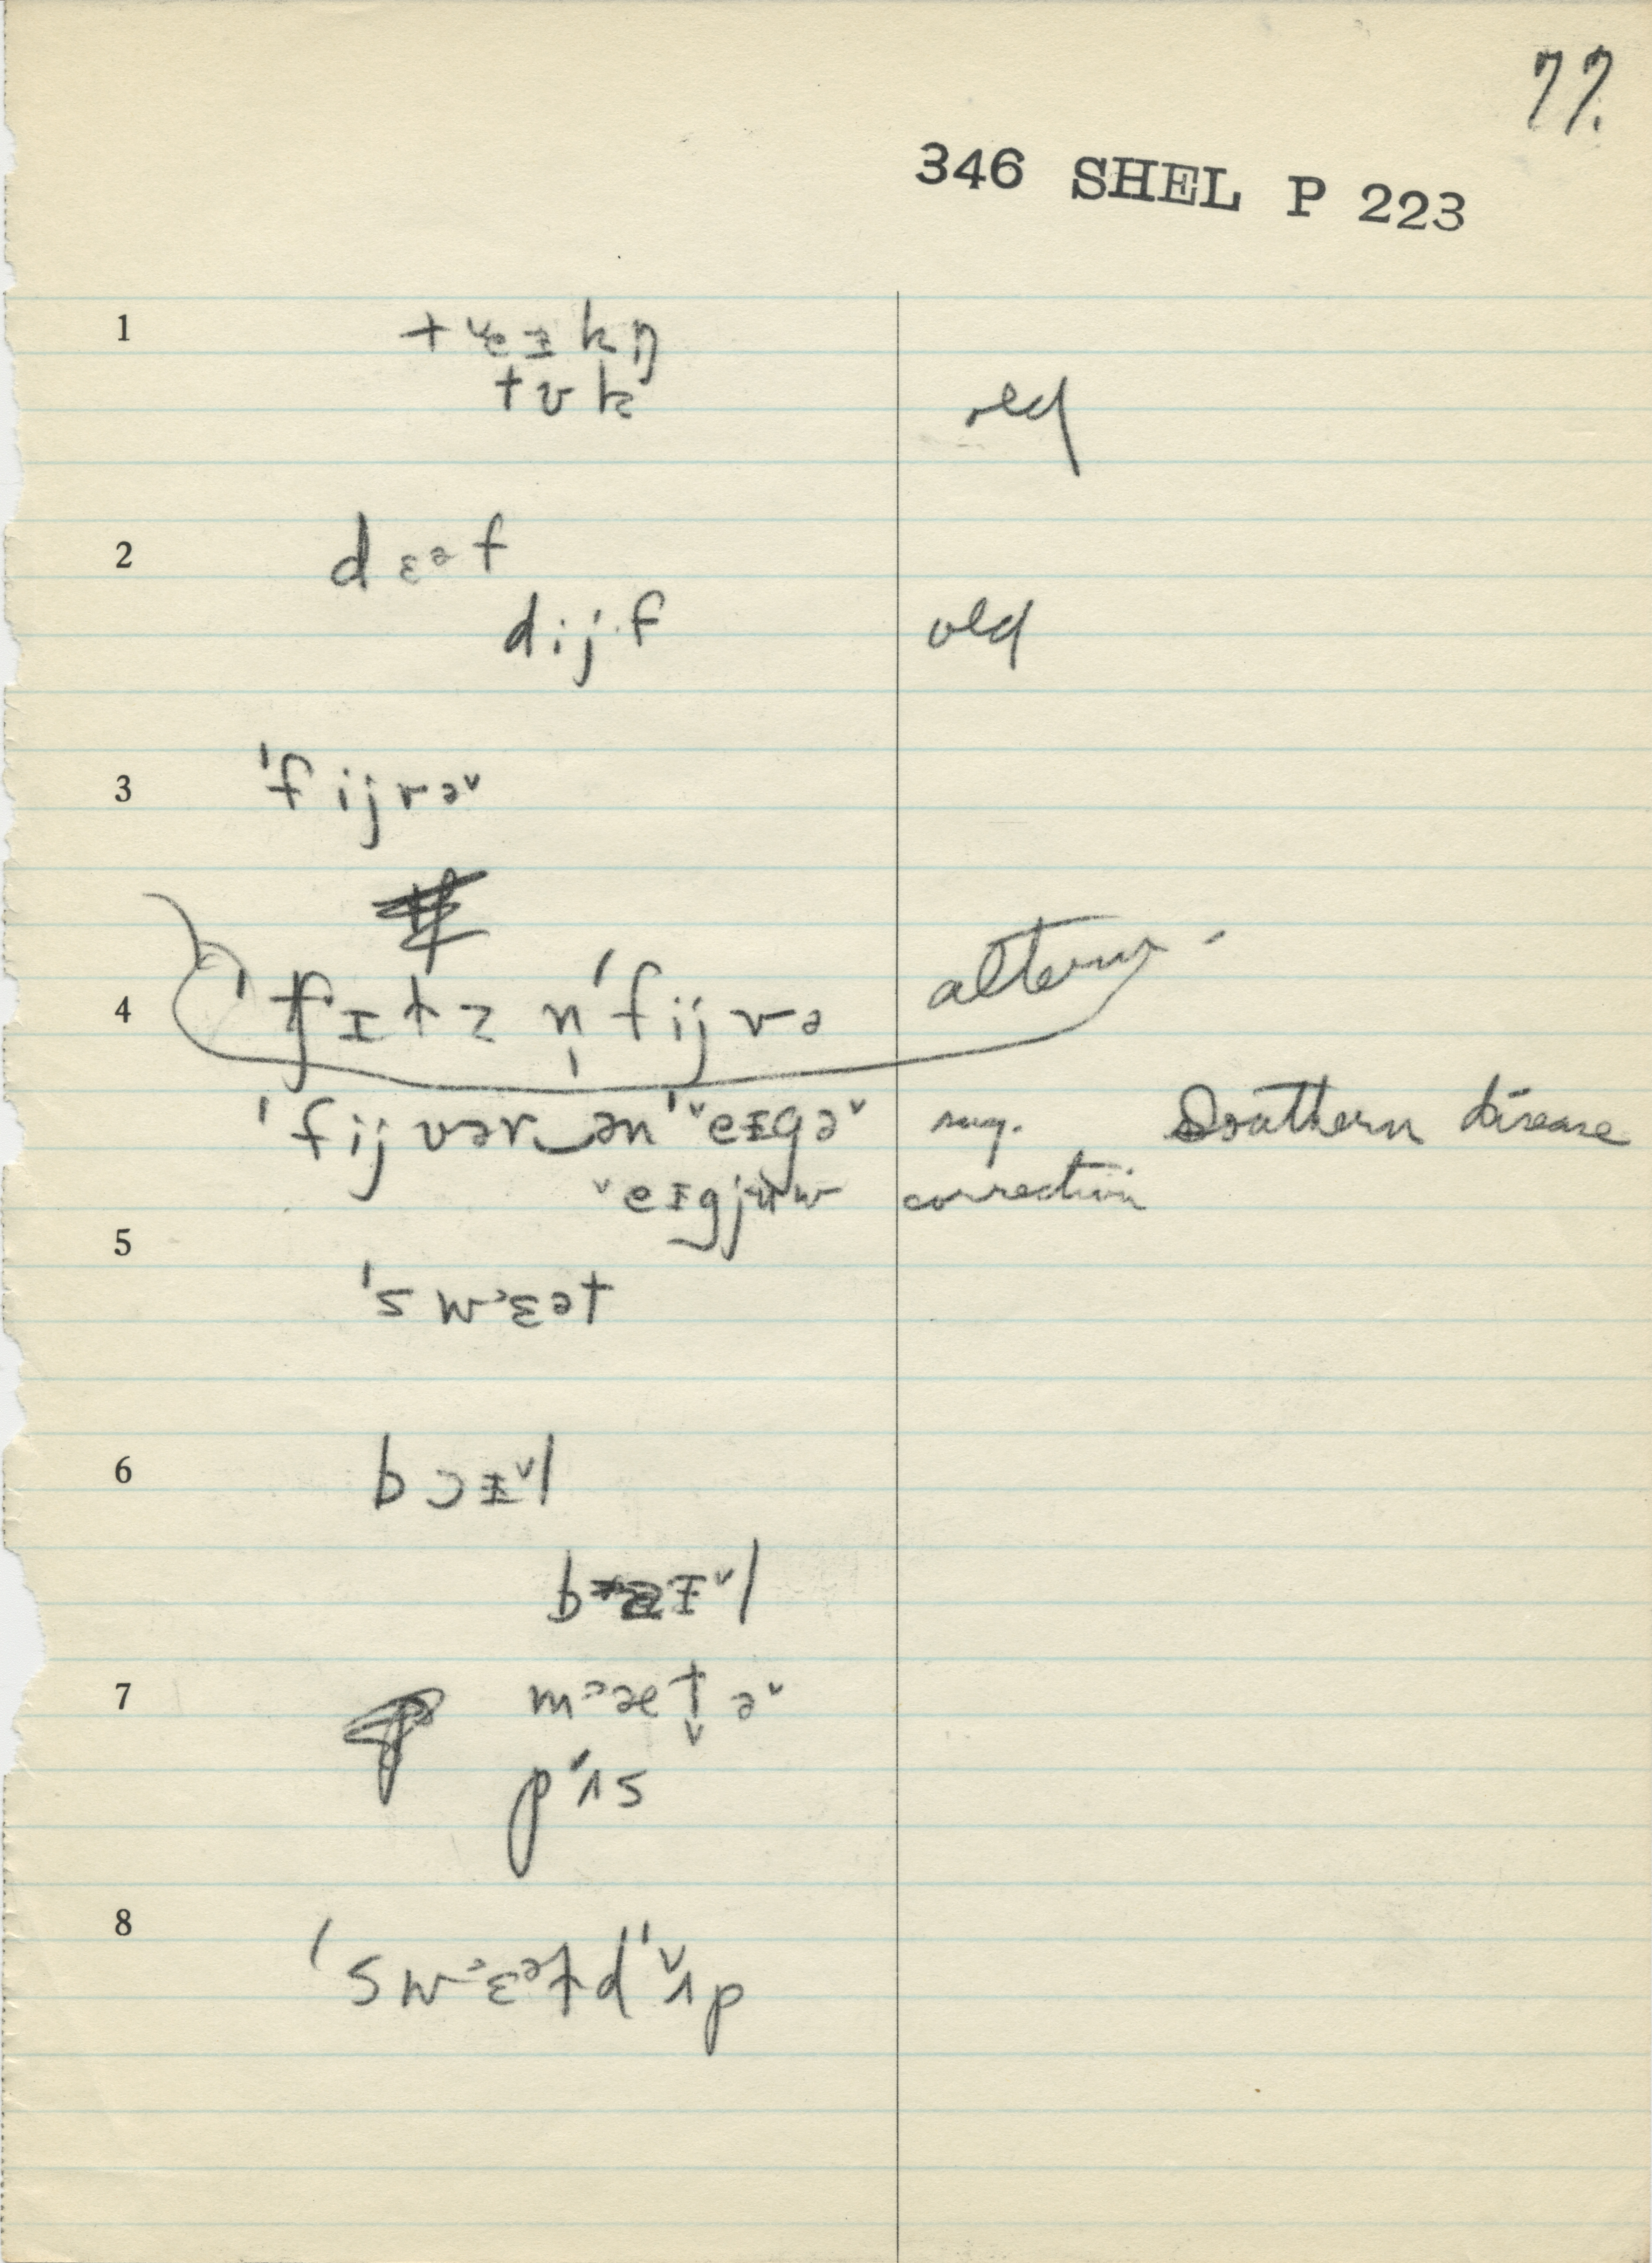 77.
346 SHEL P 223
1
t ˅eɪ k n̩
t ʊ k old
2
d ɛə f
d i j f old
3
ˈf i j v ə˅
4
ˈf ɪ t s n̩ ˈf i j v ə altern.
ˈf i j v ə r ‿ ə n ˈ˅e ɪ g ə˅ sug. Southern disease
˅e ɪ g j u w correction
5
ˈs w ɛ ə t
6
b ɔ ɪ˅ l
7
m æ t̬ ə˅
p ʌ s
8
ˈs w ɛ ə t d ˈʌ˅ p